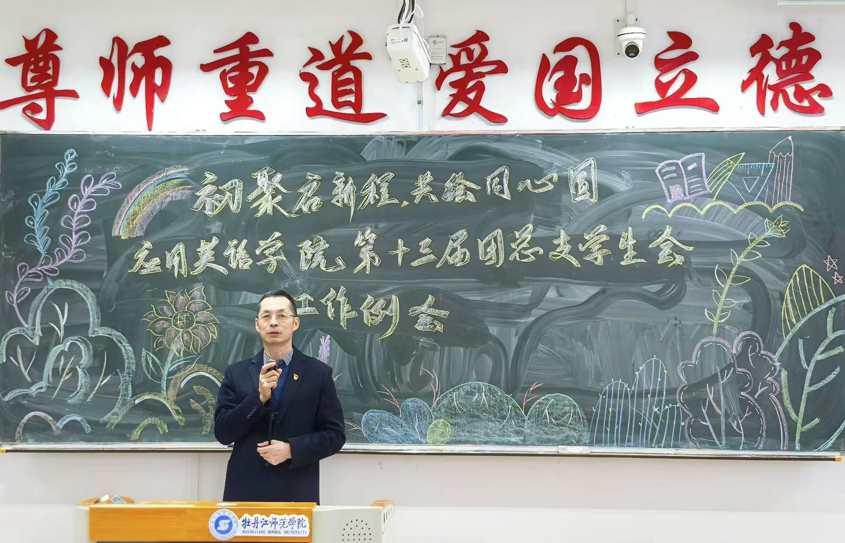 尊师重道 爱国立德
初聚启新程,共绘同心圆
应用英语学院第十三届团总支学生会
工作例会
牡丹江师范学院
MUDANJIANG NORMAL UNIVERSITY